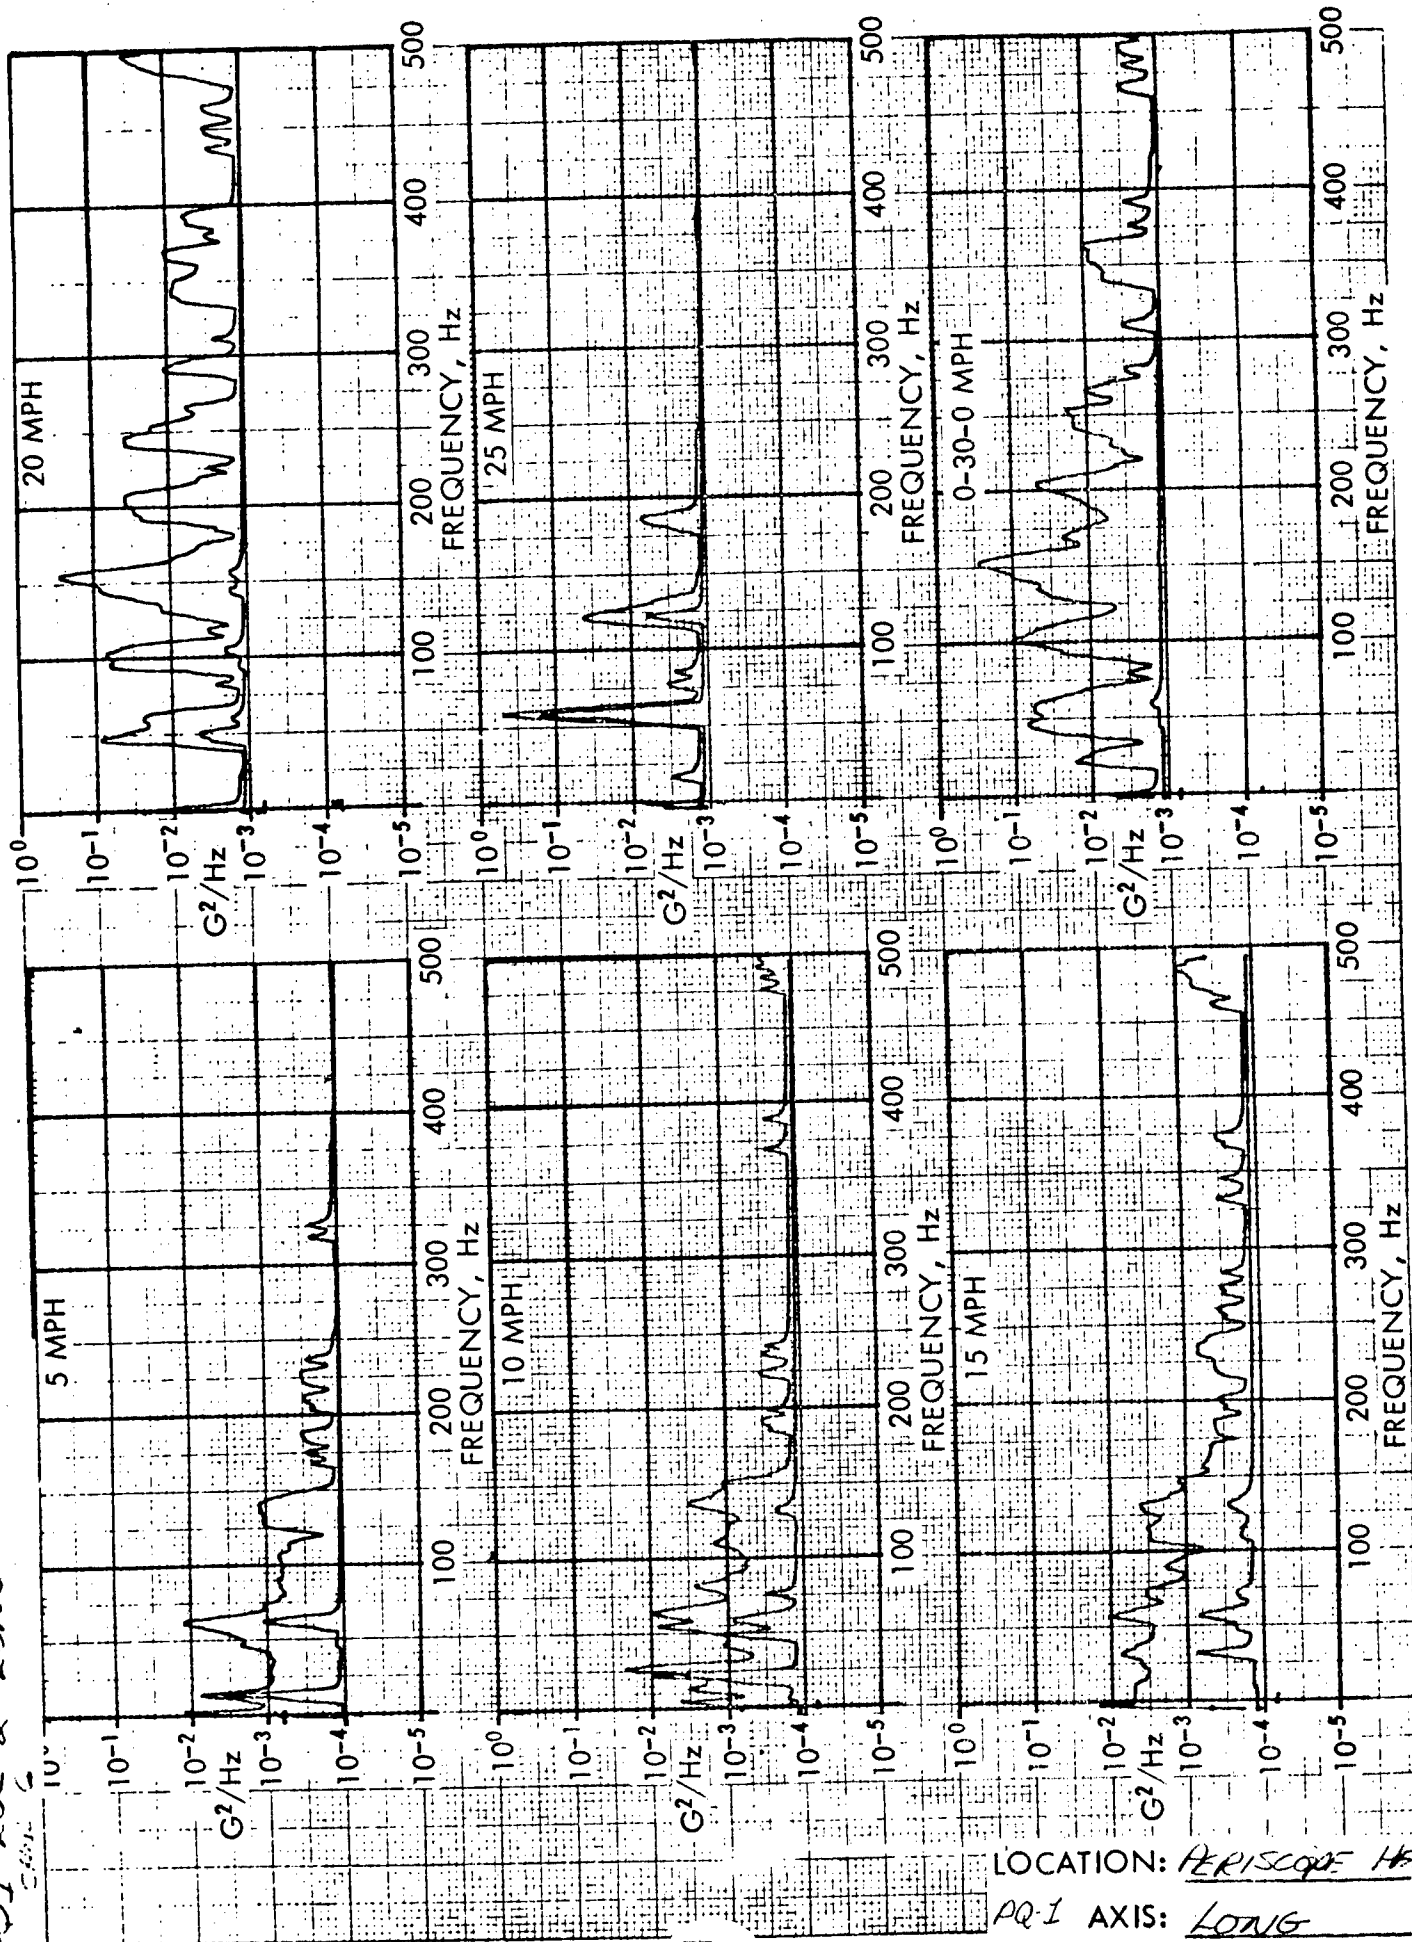 5 MPH
10⁻¹
10⁻²
G²/Hz
10⁻³
10⁻⁴
10⁻⁵
100
200
300
400
500
FREQUENCY, Hz
10 MPH
10⁰
10⁻¹
10⁻²
G²/Hz
10⁻³
10⁻⁴
10⁻⁵
100
200
300
400
500
FREQUENCY, Hz
15 MPH
10⁰
10⁻¹
10⁻²
G²/Hz
10⁻³
10⁻⁴
10⁻⁵
100
200
300
400
500
FREQUENCY, Hz
20 MPH
10⁰
10⁻¹
10⁻²
G²/Hz
10⁻³
10⁻⁴
10⁻⁵
100
200
300
400
500
FREQUENCY, Hz
25 MPH
10⁰
10⁻¹
10⁻²
G²/Hz
10⁻³
10⁻⁴
10⁻⁵
100
200
300
400
500
FREQUENCY, Hz
0-30-0 MPH
10⁰
10⁻¹
10⁻²
G²/Hz
10⁻³
10⁻⁴
10⁻⁵
100
200
300
400
500
FREQUENCY, Hz
LOCATION: PERISCOPE
PQ-1 AXIS: LONG